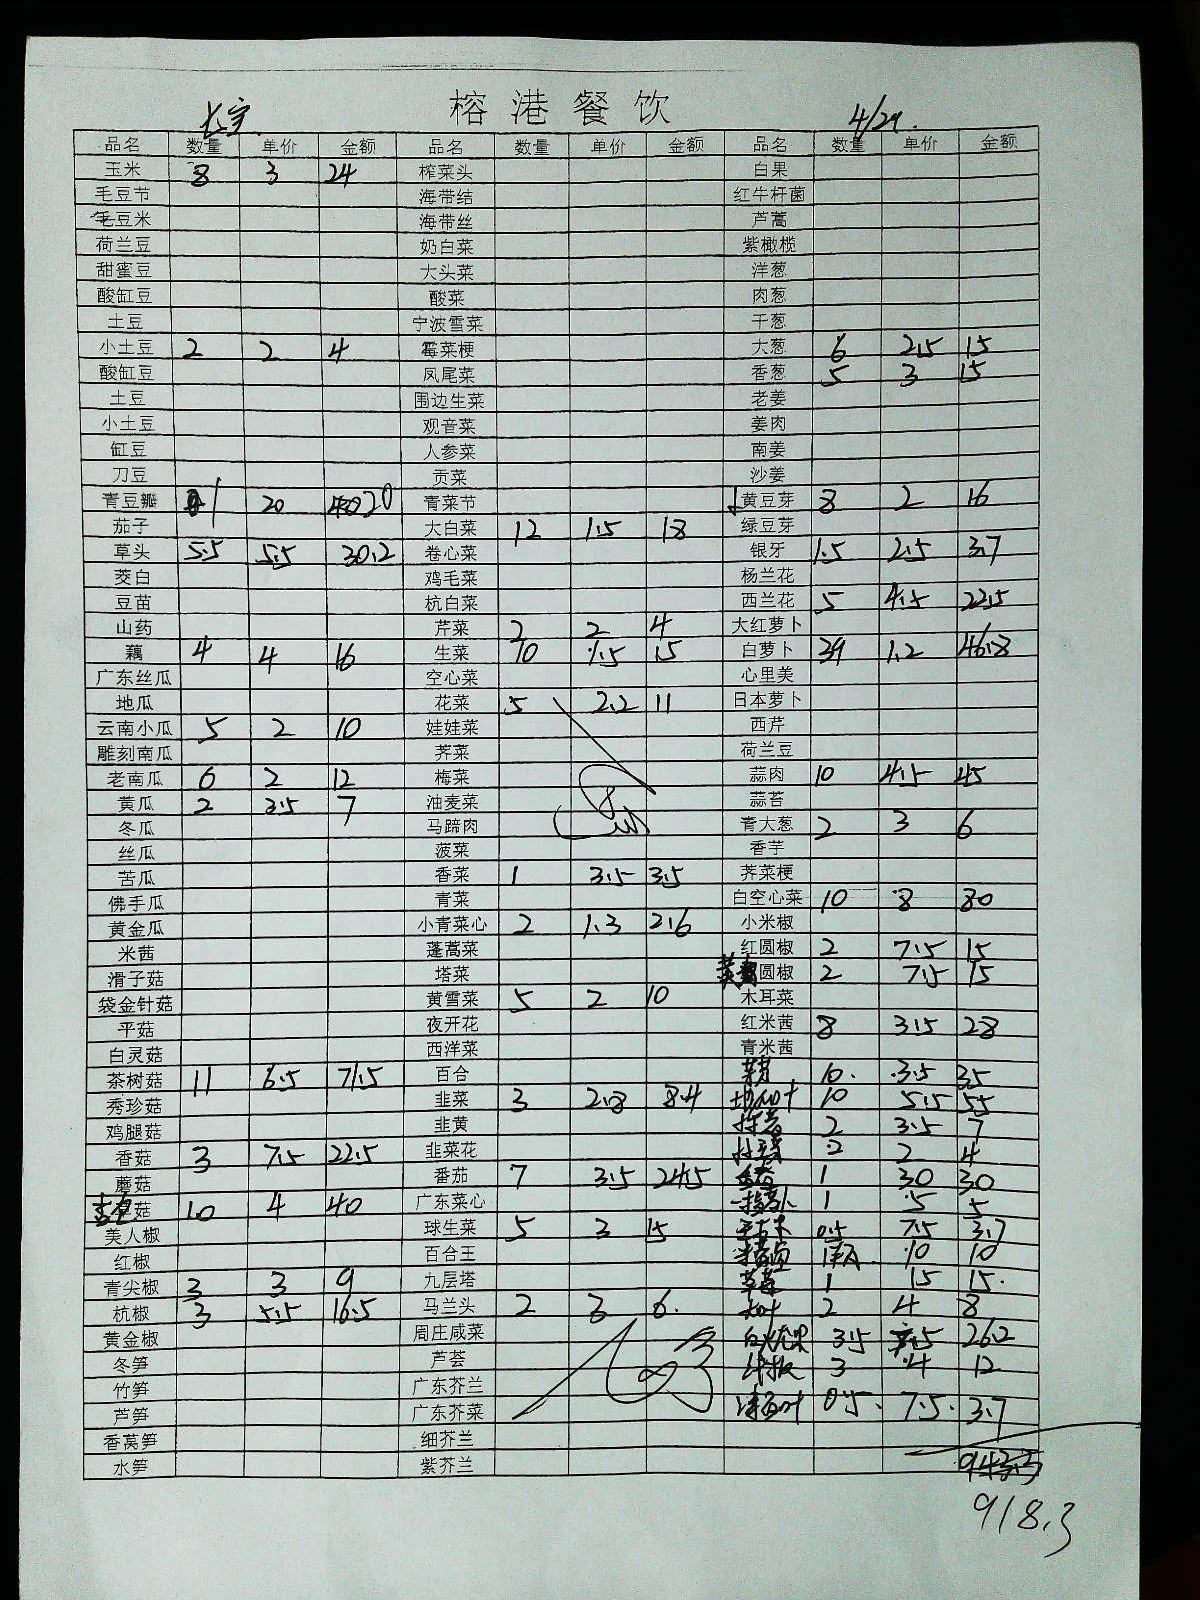 榕港餐饮
长宁 4/29.
品名 数量 单价 金额 品名 数量 单价 金额 品名 数量 单价 金额
玉米 8 3 24 榨菜头 白果
毛豆节 海带结 红牛杆菌
毛豆米 海带丝 芦蒿
荷兰豆 奶白菜 紫橄榄
甜蜜豆 大头菜 洋葱
酸缸豆 酸菜 肉葱
土豆 宁波雪菜 干葱
小土豆 2 2 4 霉菜梗 大葱 6 2.5 15
酸缸豆 凤尾菜 香葱 5 3 15
土豆 围边生菜 老姜
小土豆 观音菜 姜肉
缸豆 人参菜 南姜
刀豆 贡菜 沙姜
青豆瓣 1 20 20 青菜节 黄豆芽 8 2 16
茄子 大白菜 12 1.5 18 绿豆芽
草头 5.5 5.5 30.2 卷心菜 银牙 1.5 2.5 3.7
茭白 鸡毛菜 杨兰花
豆苗 杭白菜 西兰花 5 4.5 22.5
山药 芹菜 2 2 4 大红萝卜
藕 4 4 16 生菜 10 1.5 15 白萝卜 39 1.2 46.8
广东丝瓜 空心菜 心里美
地瓜 花菜 5 2.2 11 日本萝卜
云南小瓜 5 2 10 娃娃菜 西芹
雕刻南瓜 荠菜 荷兰豆
老南瓜 6 2 12 梅菜 蒜肉 10 4.5 45
黄瓜 2 3.5 7 油麦菜 蒜苔
冬瓜 马蹄肉 青大葱 2 3 6
丝瓜 菠菜 香芋
苦瓜 香菜 1 3.5 3.5 荠菜梗
佛手瓜 青菜 白空心菜 10 8 80
黄金瓜 小青菜心 2 1.3 2.6 小米椒
米茜 蓬蒿菜 红圆椒 2 7.5 15
滑子菇 塔菜 圆椒 2 7.5 15
袋金针菇 黄雪菜 5 2 10 木耳菜
平菇 夜开花 红米茜 8 3.5 28
白灵菇 西洋菜 青米茜
茶树菇 11 6.5 71.5 百合 10 3.5 35
秀珍菇 韭菜 3 2.8 8.4 地瓜叶 10 5.5 55
鸡腿菇 韭黄 2 3.5 7
香菇 3 7.5 22.5 韭菜花 2 2 4
蘑菇 番茄 7 3.5 24.5 1 30 30
菇 10 4 40 广东菜心 1 5 5
美人椒 球生菜 5 3 15 0.5 7.5 3.7
红椒 百合王 10 10
青尖椒 3 3 9 九层塔 草莓 1 15 15.
杭椒 3 5.5 16.5 马兰头 2 3 6. 2 4 8
黄金椒 周庄咸菜 白火龙果 3.5 7.5 26.2
冬笋 芦荟 3 4 12
竹笋 广东芥兰
芦笋 广东芥菜 0.5 7.5 3.7
香莴笋 细芥兰
水笋 紫芥兰 943.3
918.3